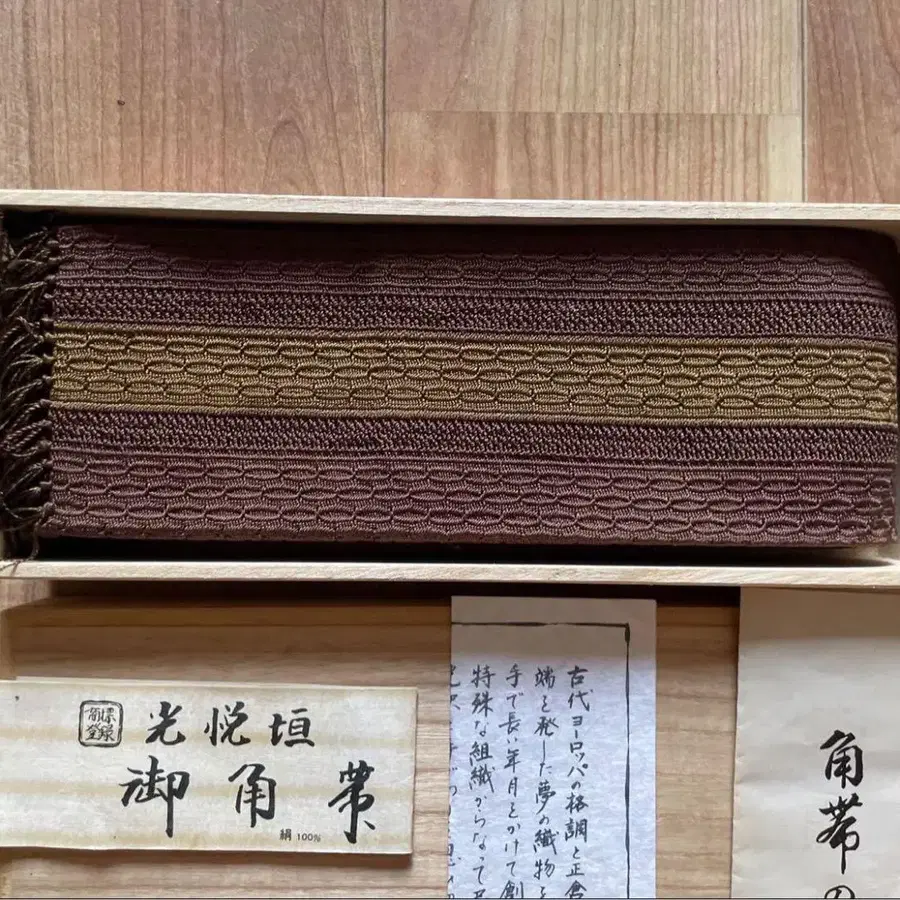 商標登録
光悦垣
御角帯
絹 100%
古代ヨーロッパの格調と正倉
端を発した夢の織物を
手で長い年月をかけて創
特殊な組織からなって
角帯の